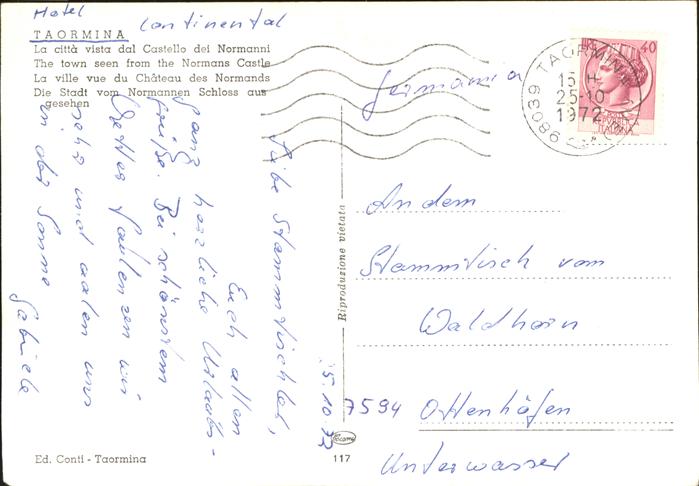 Hotel Continental
TAORMINA
La città vista dal Castello dei Normanni
The town seen from the Normans Castle
La ville vue du Château des Normands
Die Stadt vom Normannen Schloss aus
gesehen
Germania
40
98039 TAORMINA
15 H
25-10
1972
ITALIANA
25.10.72
Liebe Stammtischler,
Euch allen
ganz herzliche Urlaubs-
grüße. Bei schönstem
Wetter faulenzen wir
sehr und aalen uns
in der Sonne
Gabriele
An dem
Stammtisch vom
Waldhorn
7594 Ottenhöfen
Unterwasser
Riproduzione vietata
Ed. Conti - Taormina
117